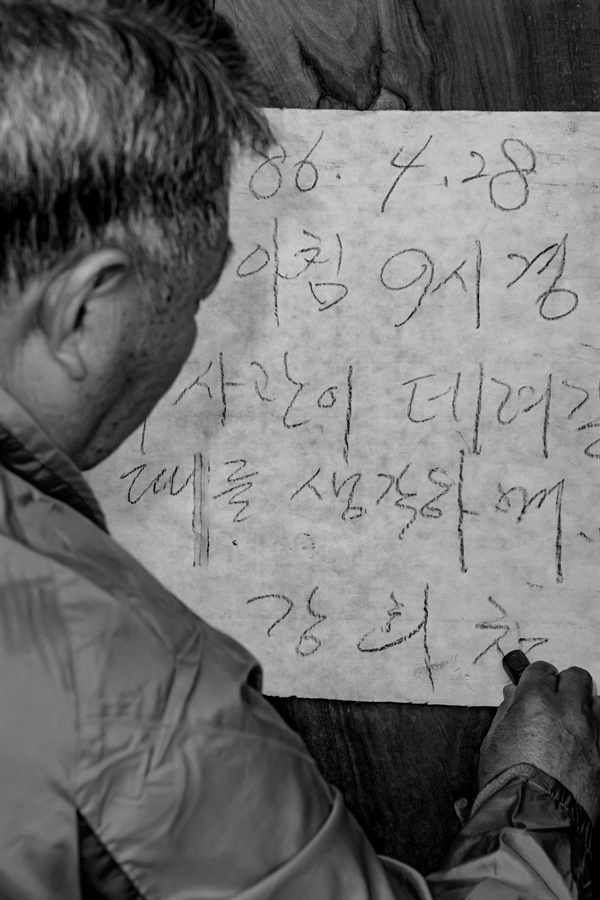 86. 4.28
아침 9시경
사관이 데려갈
때를 생각하며.
강 희